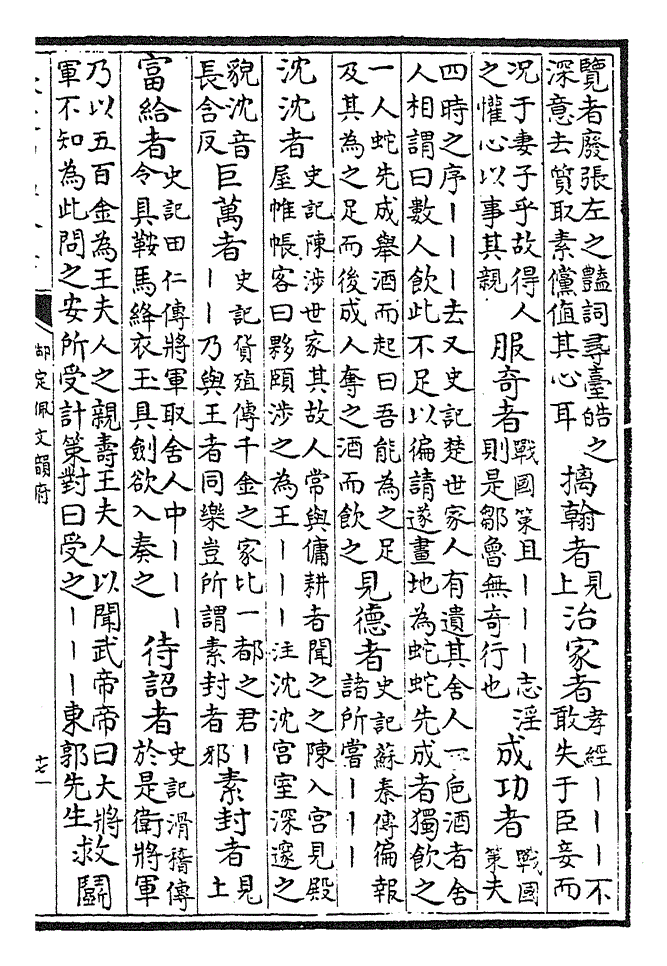 覽者廢張左之豔詞尋臺皓之深意去質取素儻值其心耳 摛翰者 見上 治家者 孝經｜｜｜不敢失于臣妾而
况于妻子乎故得人之懽心以事其親 服奇者 戰國策且｜｜｜志淫則是鄒魯無奇行也 成功者 戰國策夫
四時之序｜｜｜去又史記楚世家人有遺其舍人一巵酒者舍人相謂曰數人飲此不足以徧請遂畫地為蛇蛇先成者獨飲之
一人蛇先成舉酒而起曰吾能為之足及其為之足而後成人奪之酒而飲之 見德者 史記蘇秦傳徧報諸所嘗｜｜｜
沈沈者 史記陳涉世家其故人常與傭耕者聞之之陳入宫見殿屋帷帳客曰夥頤涉之為王｜｜｜注沈沈宫室深邃之
貌沈音長含反 巨萬者 史記貨殖傳千金之家比一都之君｜｜｜乃與王者同樂豈所謂素封者邪 素封者 見上
富給者 史記田仁傳將軍取舍人中｜｜｜令具鞍馬絳衣玉具劍欲入奏之 待詔者 史記滑稽傳於是衛將軍
乃以五百金為王夫人之親壽王夫人以聞武帝帝曰大將軍不知為此問之安所受計策對曰受之｜｜｜東郭先生 救鬭
御定佩文韻府
十七